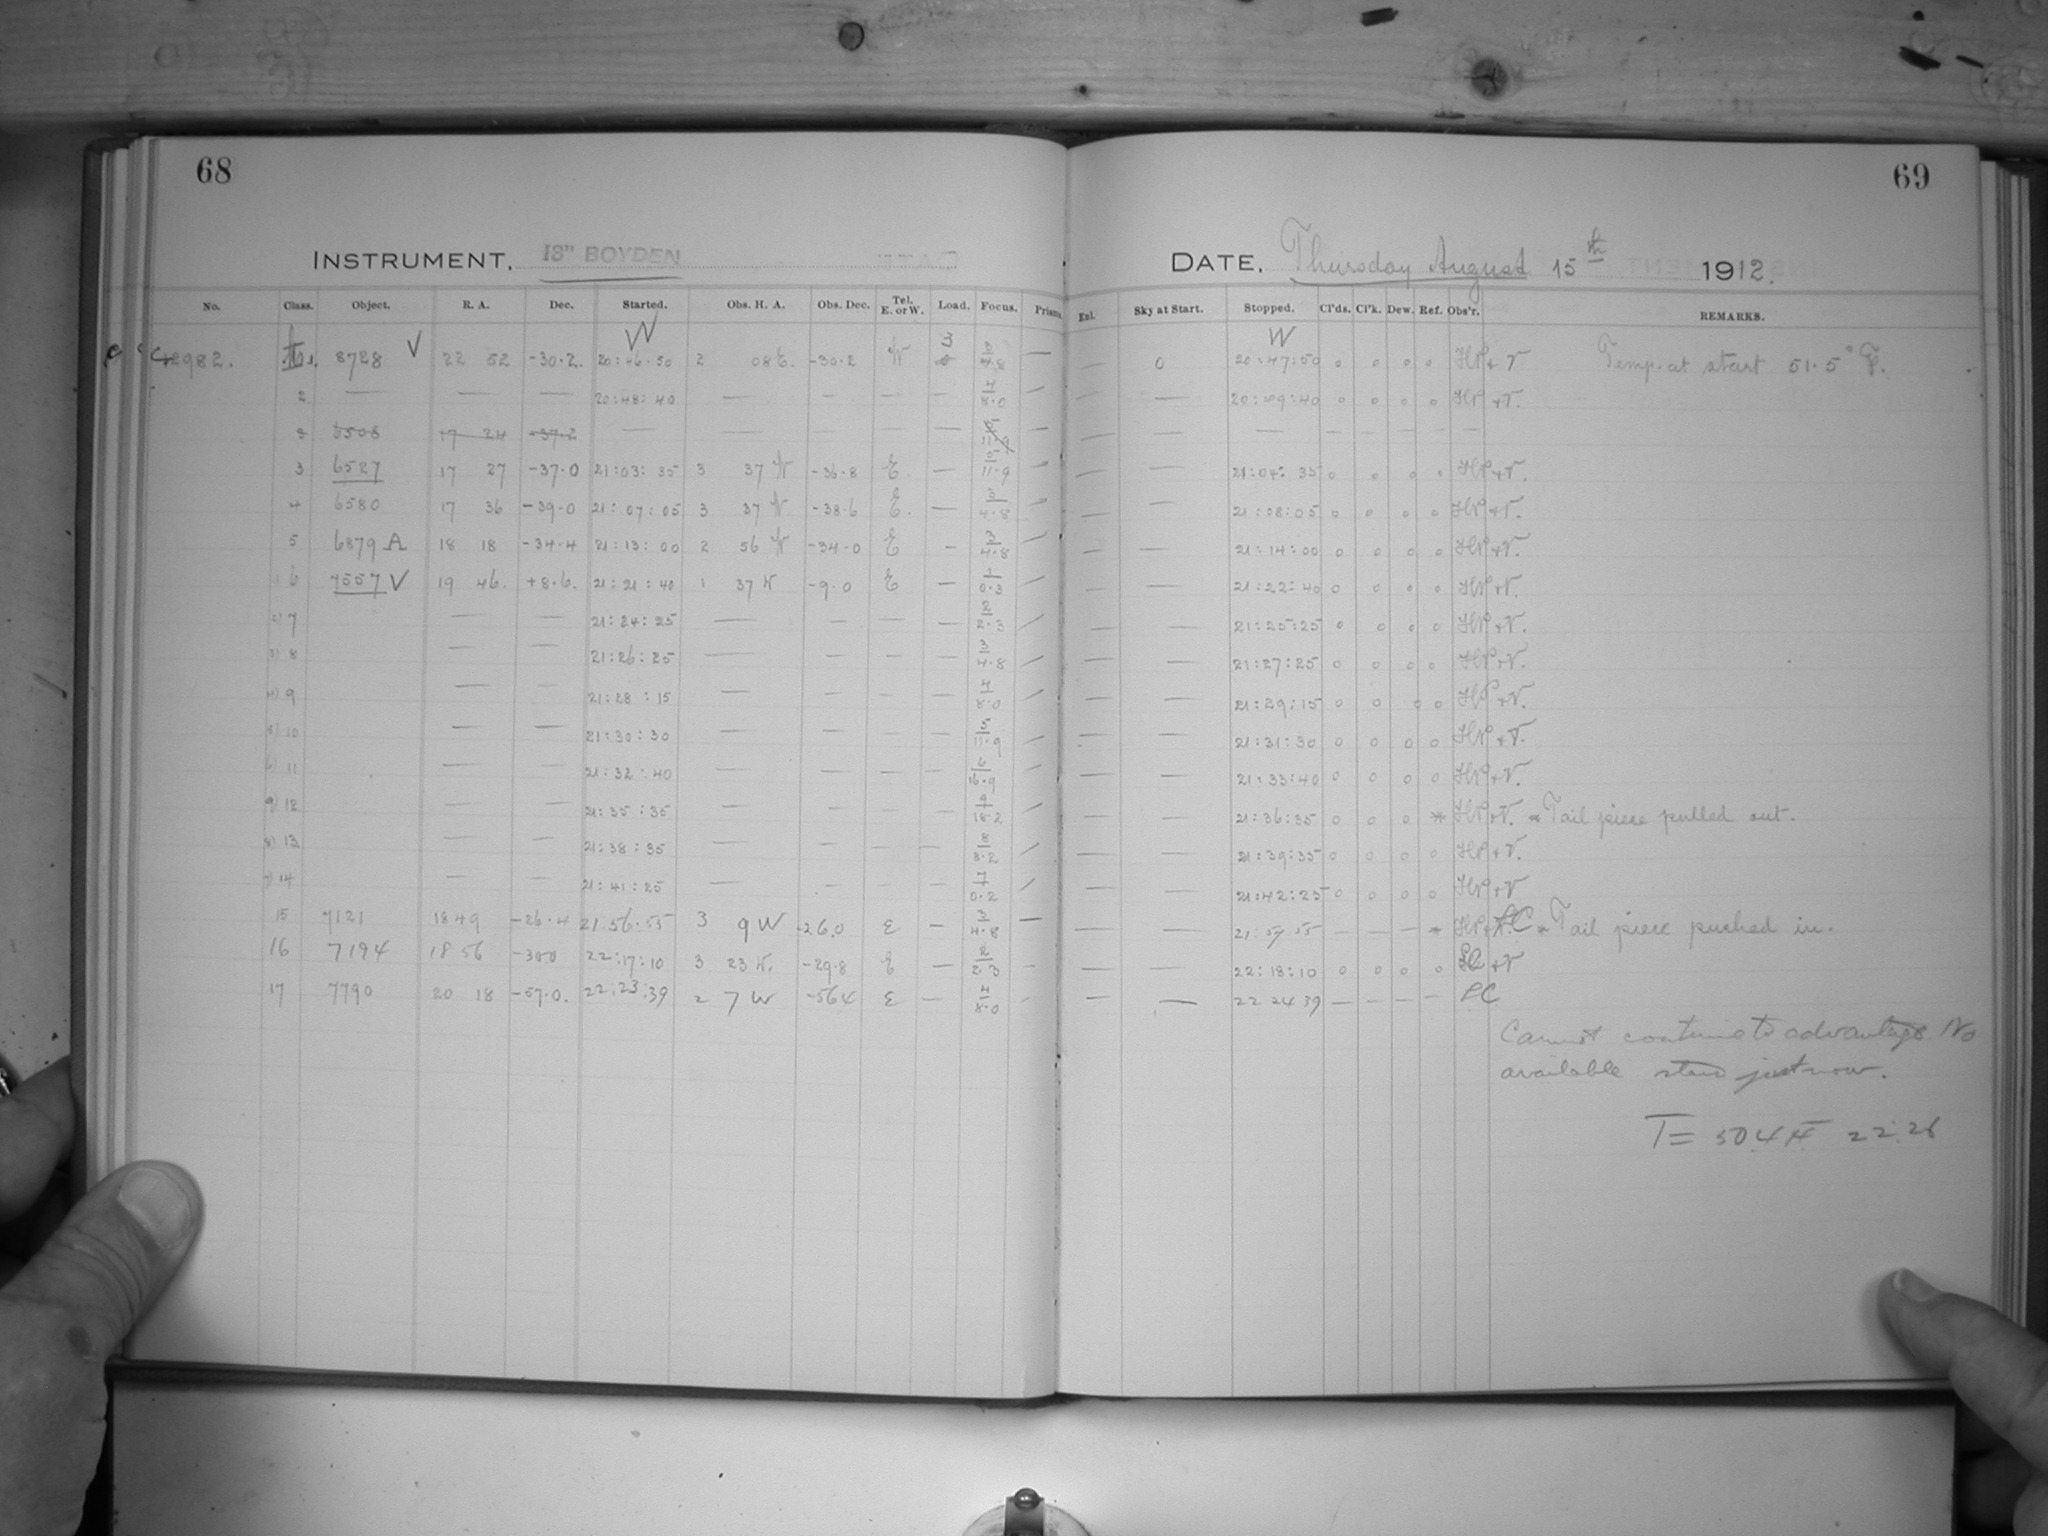 68
69
INSTRUMENT, 13" BOYDEN
DATE, Thursday August 15th 1912.
No. Class. Object. R. A. Dec. Started. Obs. H. A. Obs. Dec. Tel. E. or W. Load. Focus. Prisms Enl. Sky at Start. Stopped. Cl'ds. Cl'k. Dew. Ref. Obs'r. REMARKS.
W W
2982. 1. 8728 V 22 52 -30.2. 20:46.50 2 08 E. -30.2 W 3 3/4.8 — — 0 20:47:50 0 0 0 0 + V Temp. at start 51.5° F.
2. — — — 20:48:40 — — — — 4/8.0 — — — 20:49:40 0 0 0 0 +V.
3 6508 17 24 -37.2 — — — — — — — — — — — — — —
3 6527 17 27 -37.0 21:03:35 3 37 W -36.8 E. — 5/11.9 — — — 21:04:35 0 0 0 0 +V.
4 6580 17 36 -39.0 21:07:05 3 37 W -38.6 E. — 3/4.8 — — — 21:08:05 0 0 0 0 +V.
5 6879 A 18 18 -34.4 21:13:00 2 56 W -34.0 E — 3/4.8 — — — 21:14:00 0 0 0 0 +V.
6 7557 V 19 46. +8.6. 21:21:40 1 37 W -9.0 E — 1/0.3 — — — 21:22:40 0 0 0 0 +V.
2) 7 — — 21:24:25 — — — — 2/2.3 — — — 21:25:25 0 0 0 0 +V.
3) 8 — — 21:26:25 — — — — 3/4.8 — — — 21:27:25 0 0 0 0 +V.
4) 9 — — 21:28:15 — — — — 4/8.0 — — — 21:29:15 0 0 0 0 +V.
5) 10 — — 21:30:30 — — — — 5/11.9 — — — 21:31:30 0 0 0 0 +V.
6) 11 — — 21:32:40 — — — — 6/16.9 — — — 21:33:40 0 0 0 0 +V.
9) 12 — — 21:35:35 — — — — 9/18.2 — — — 21:36:35 0 0 0 * +V. * Tail piece pulled out.
8) 13 — — 21:38:35 — — — — 8/8.2 — — — 21:39:35 0 0 0 0 +V.
7) 14 — — 21:41:25 — — — — 7/0.2 — — — 21:42:25 0 0 0 0 +V
15 7121 18 49 -26.4 21 56.55 3 9 W -26.0 E — 3/4.8 — — — 21:57 55 — — — * * Tail piece pushed in.
16 7194 18 56 -30.0 22:17:10 3 23 W. -29.8 E — 2/2.3 — — — 22:18:10 0 0 0 0 +V
17 7790 20 18 -57.0. 22:23:39 2 7 W -56.4 E — 4/8.0 — — — 22 24 39 — — — —
Cannot continue to advantage No
available stars just now.
T = 50.4 F 22.26